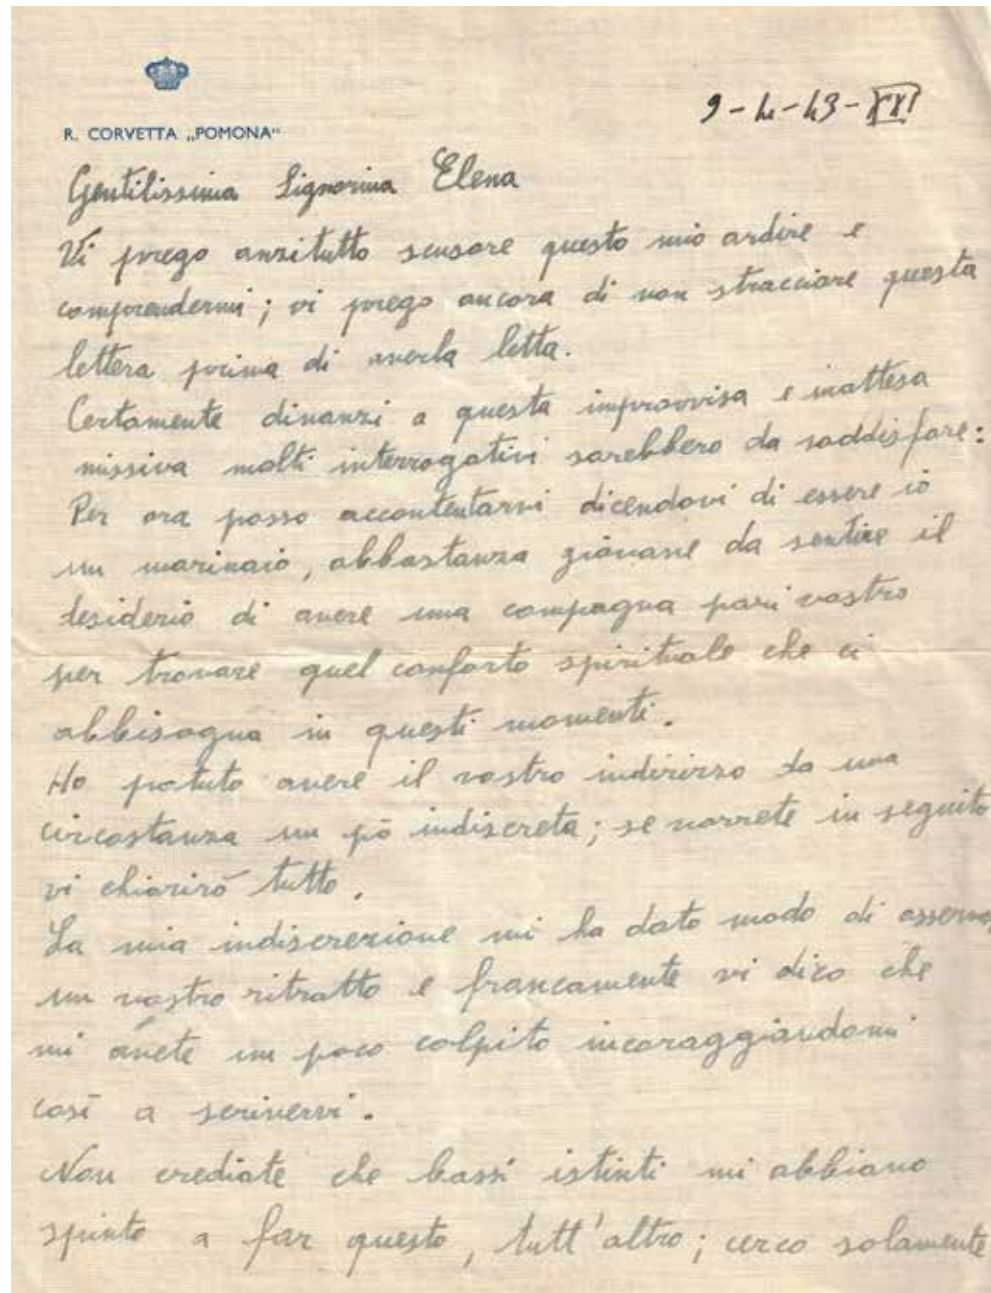 9-4-43-XXI
R. CORVETTA „POMONA"
Gentilissima Signorina Elena
Vi prego anzitutto scusare questo mio ardire e
comprendermi; vi prego ancora di non stracciare questa
lettera prima di averla letta.
Certamente dinanzi a questa improvvisa e inattesa
missiva molti interrogativi sarebbero da soddisfare:
Per ora posso accontentarvi dicendovi di essere io
un marinaio, abbastanza giovane da sentire il
desiderio di avere una compagna pari vostro
per trovare quel conforto spirituale che ci
abbisogna in questi momenti.
Ho potuto avere il vostro indirizzo da una
circostanza un pò indiscreta; se vorrete in seguito
vi chiarirò tutto.
La mia indiscrezione mi ha dato modo di
un vostro ritratto e francamente vi dico che
mi avete un poco colpito incoraggiandomi
così a scrivervi.
Non crediate che bassi istinti mi abbiano
spinto a far questo, tutt'altro; cerco solamente